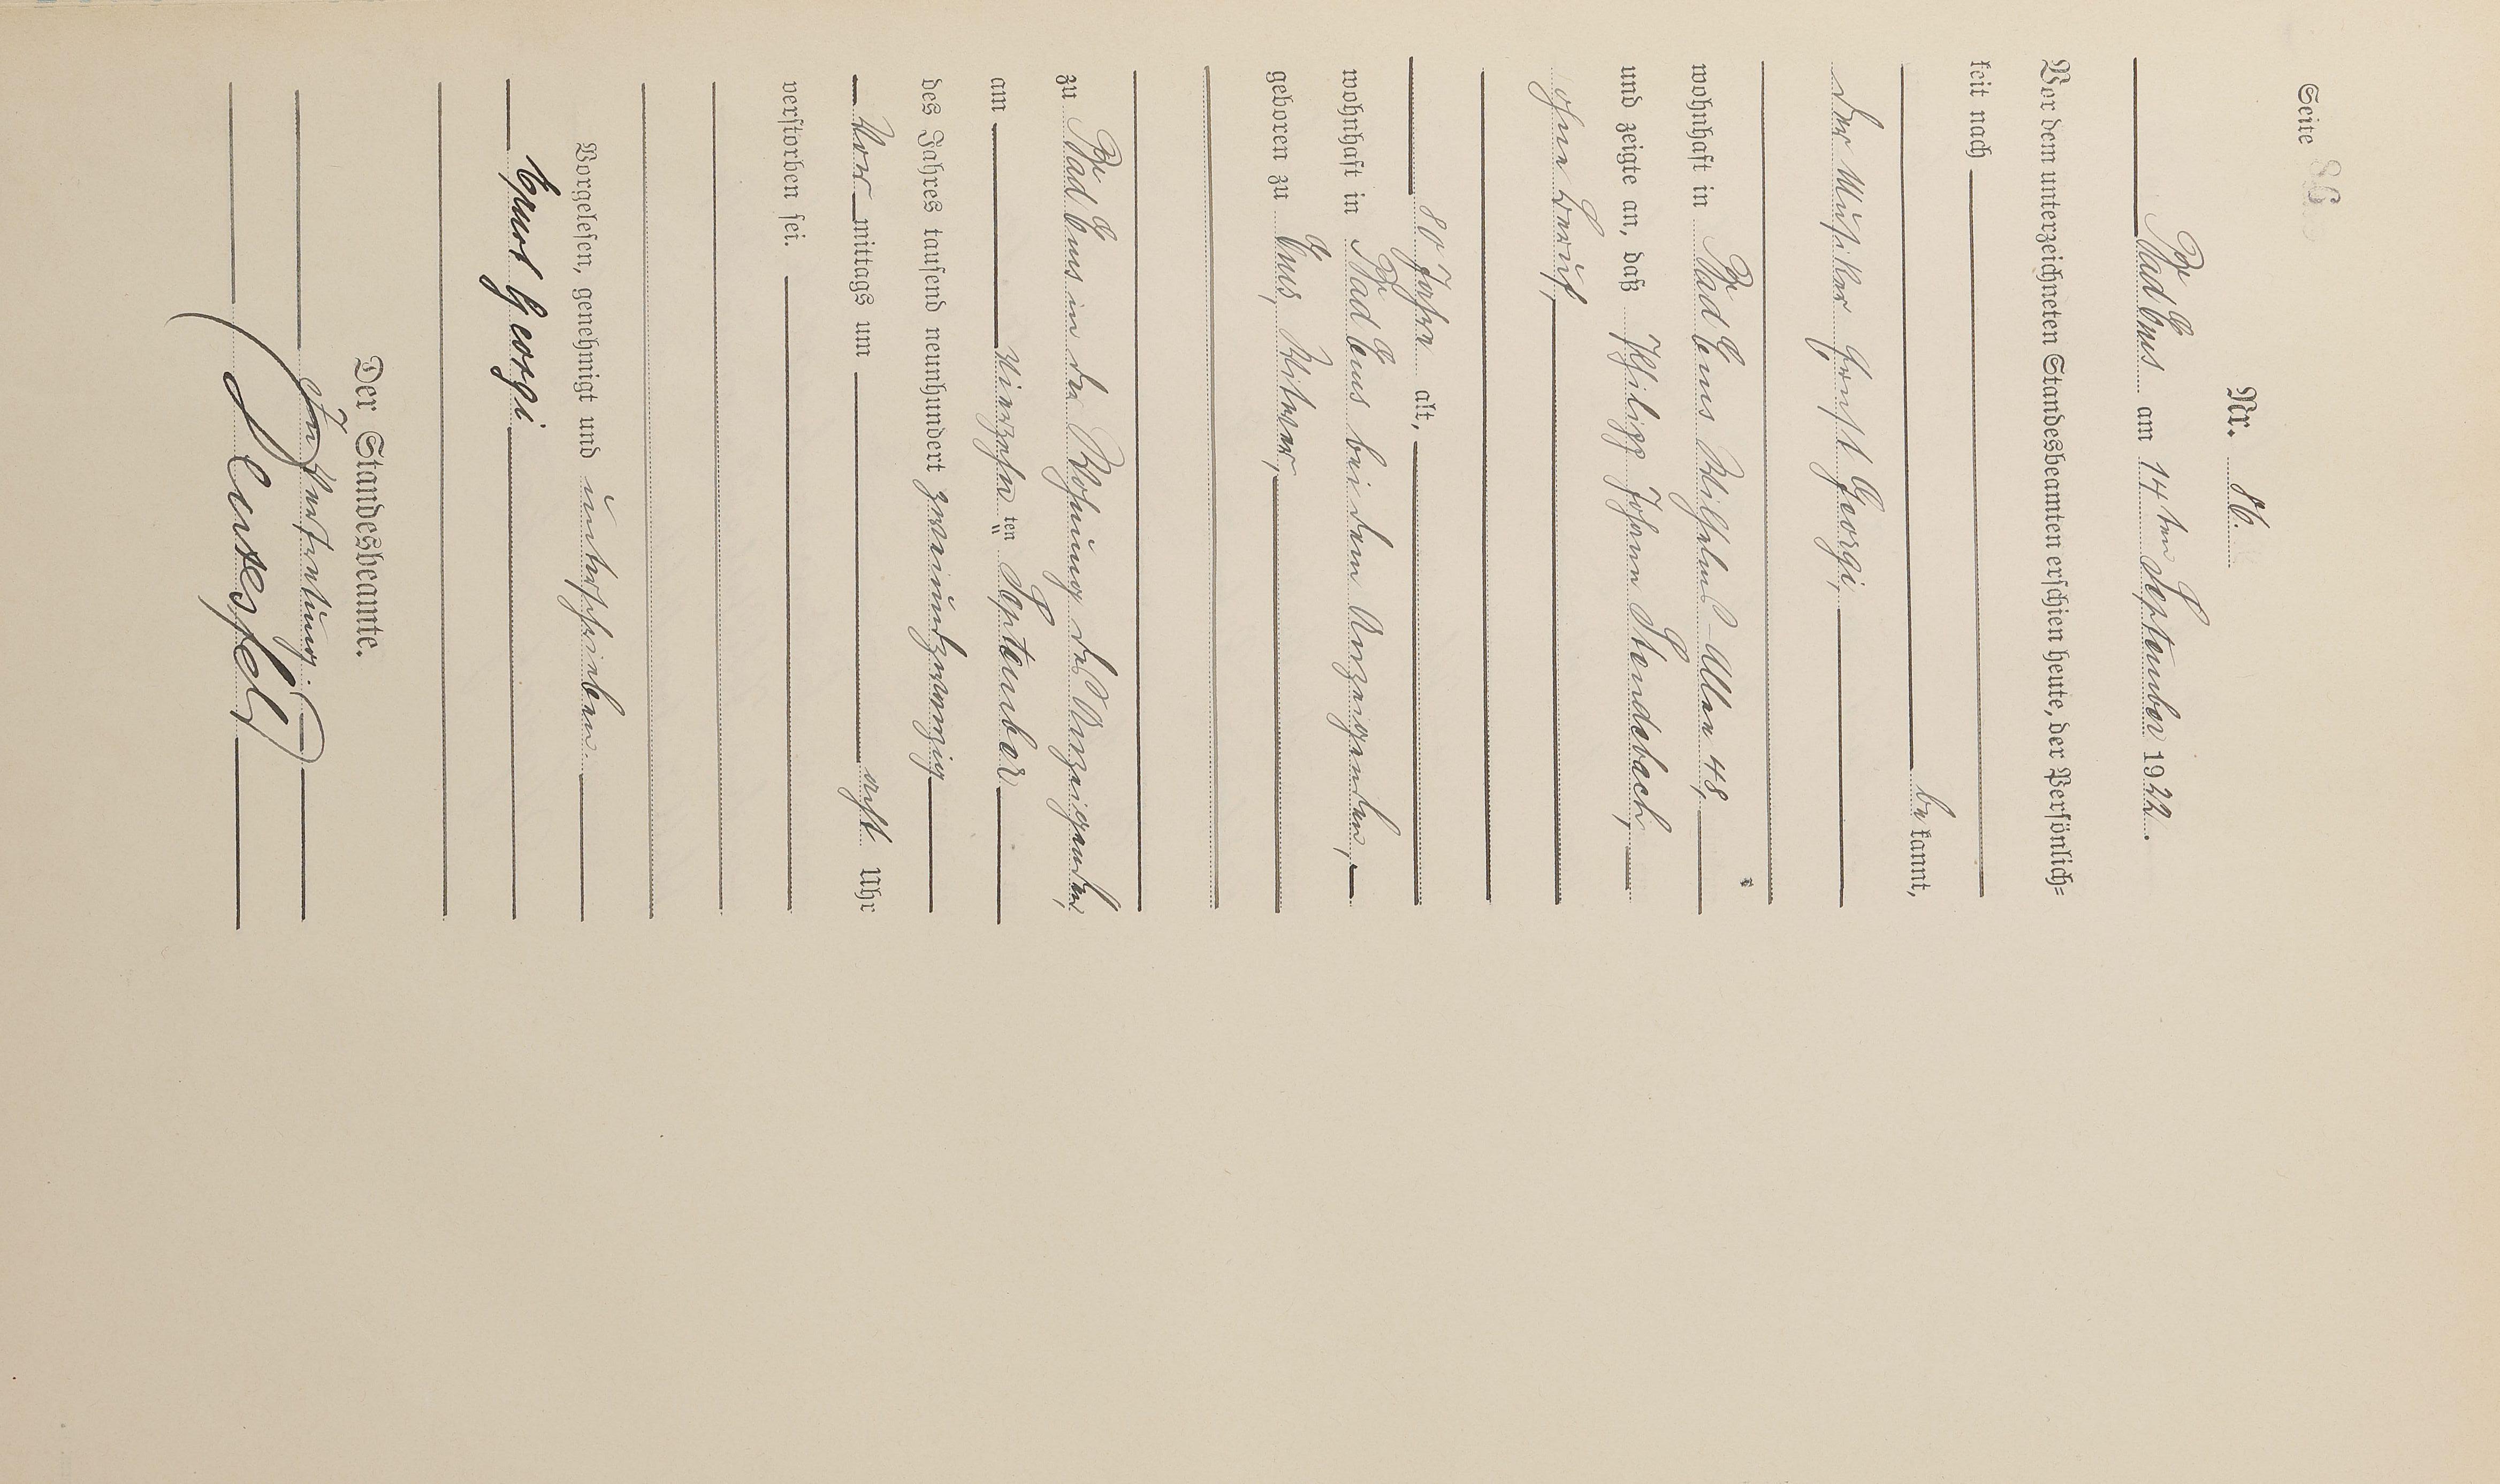 Seite 86
Nr. 86.
Bad Ems am 14ten September 1922.
Vor dem unterzeichneten Standesbeamten erschien heute, der Persönlich-
keit nach
be kannt,
der Musiker Ernst Georgi,
wohnhaft in Bad Ems Wilhelms-Allee 48,
und zeigte an, daß Philipp Johann Stendebach,
ohne Beruf,
80 Jahre alt,
wohnhaft in Bad Ems bei dem Anzeigenden,
geboren zu Ems, Witwer,
zu Bad Ems in der Wohnung des Anzeigenden,
am vierzehn ten September
des Jahres tausend neunhundert zweiundzwanzig
Vor mittags um acht Uhr
verstorben sei.
Vorgelesen, genehmigt und unterschrieben.
Ernst Georgi.
Der Standesbeamte.
In Vertretung.